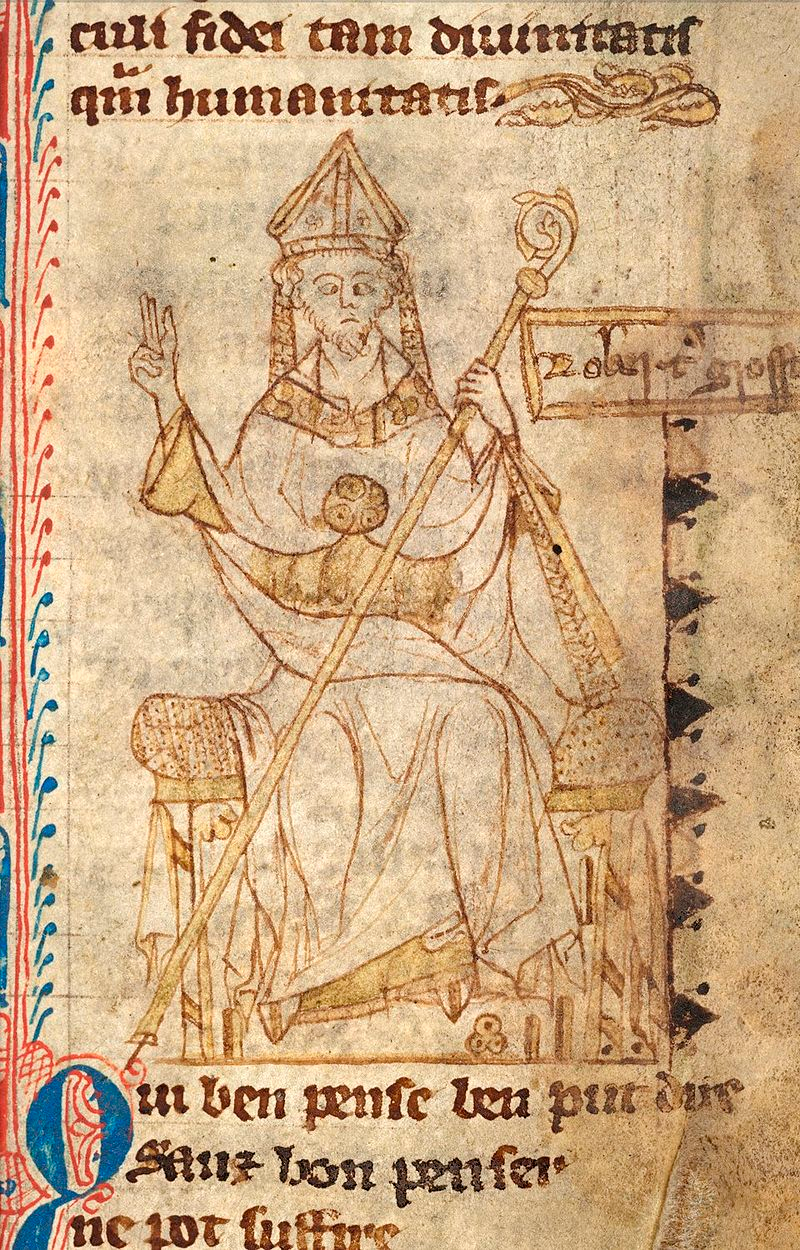 culi fidei tam diuinitatis
qm̄ humanitatis.
Robert' grosse
Qui ben pense ben put dire
Sanz bon penser
ne pot suffire